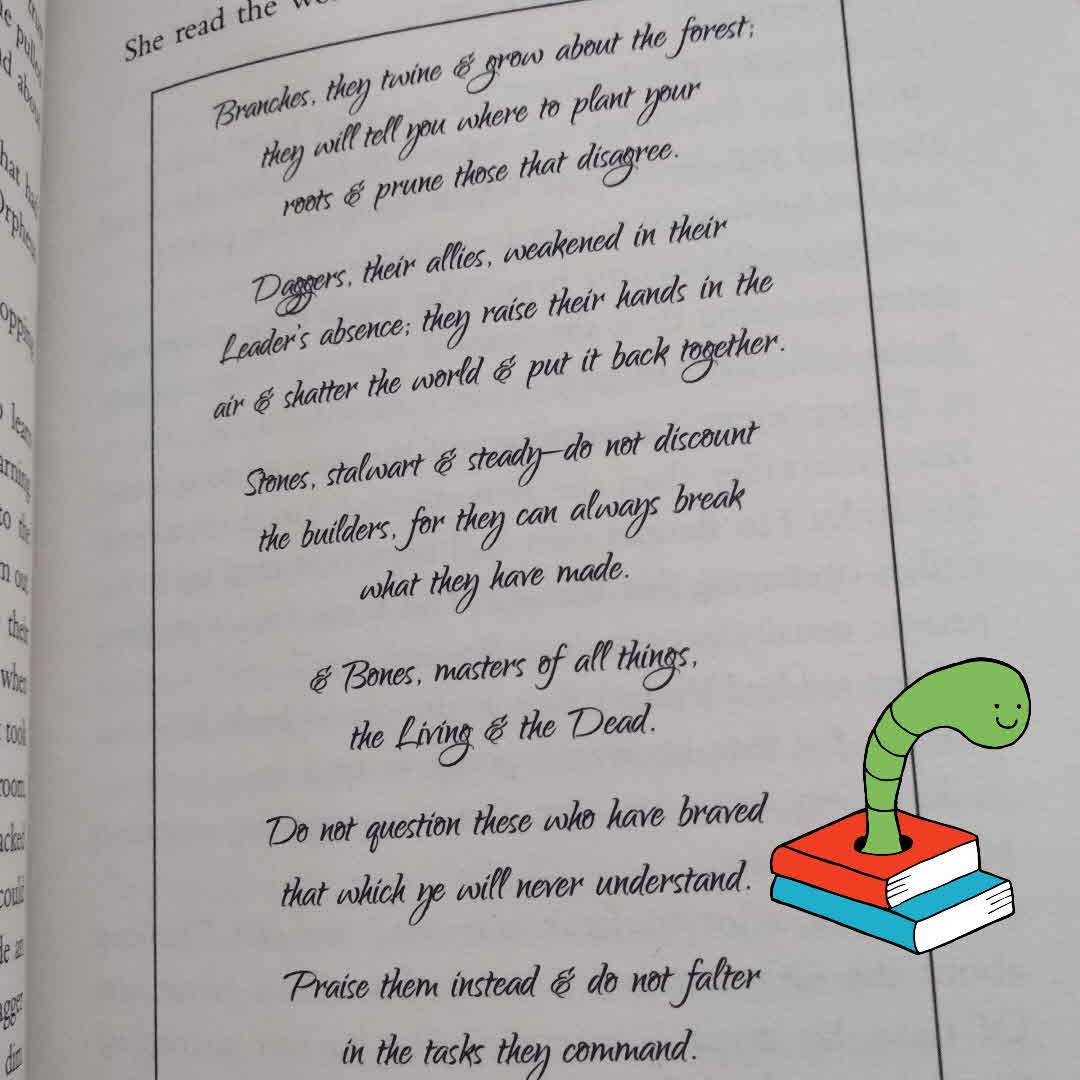 She read the
Branches, they twine & grow about the forest;
they will tell you where to plant your
roots & prune those that disagree.
Daggers, their allies, weakened in their
Leader's absence; they raise their hands in the
air & shatter the world & put it back together.
Stones, stalwart & steady—do not discount
the builders, for they can always break
what they have made.
& Bones, masters of all things,
the Living & the Dead.
Do not question these who have braved
that which ye will never understand.
Praise them instead & do not falter
in the tasks they command.